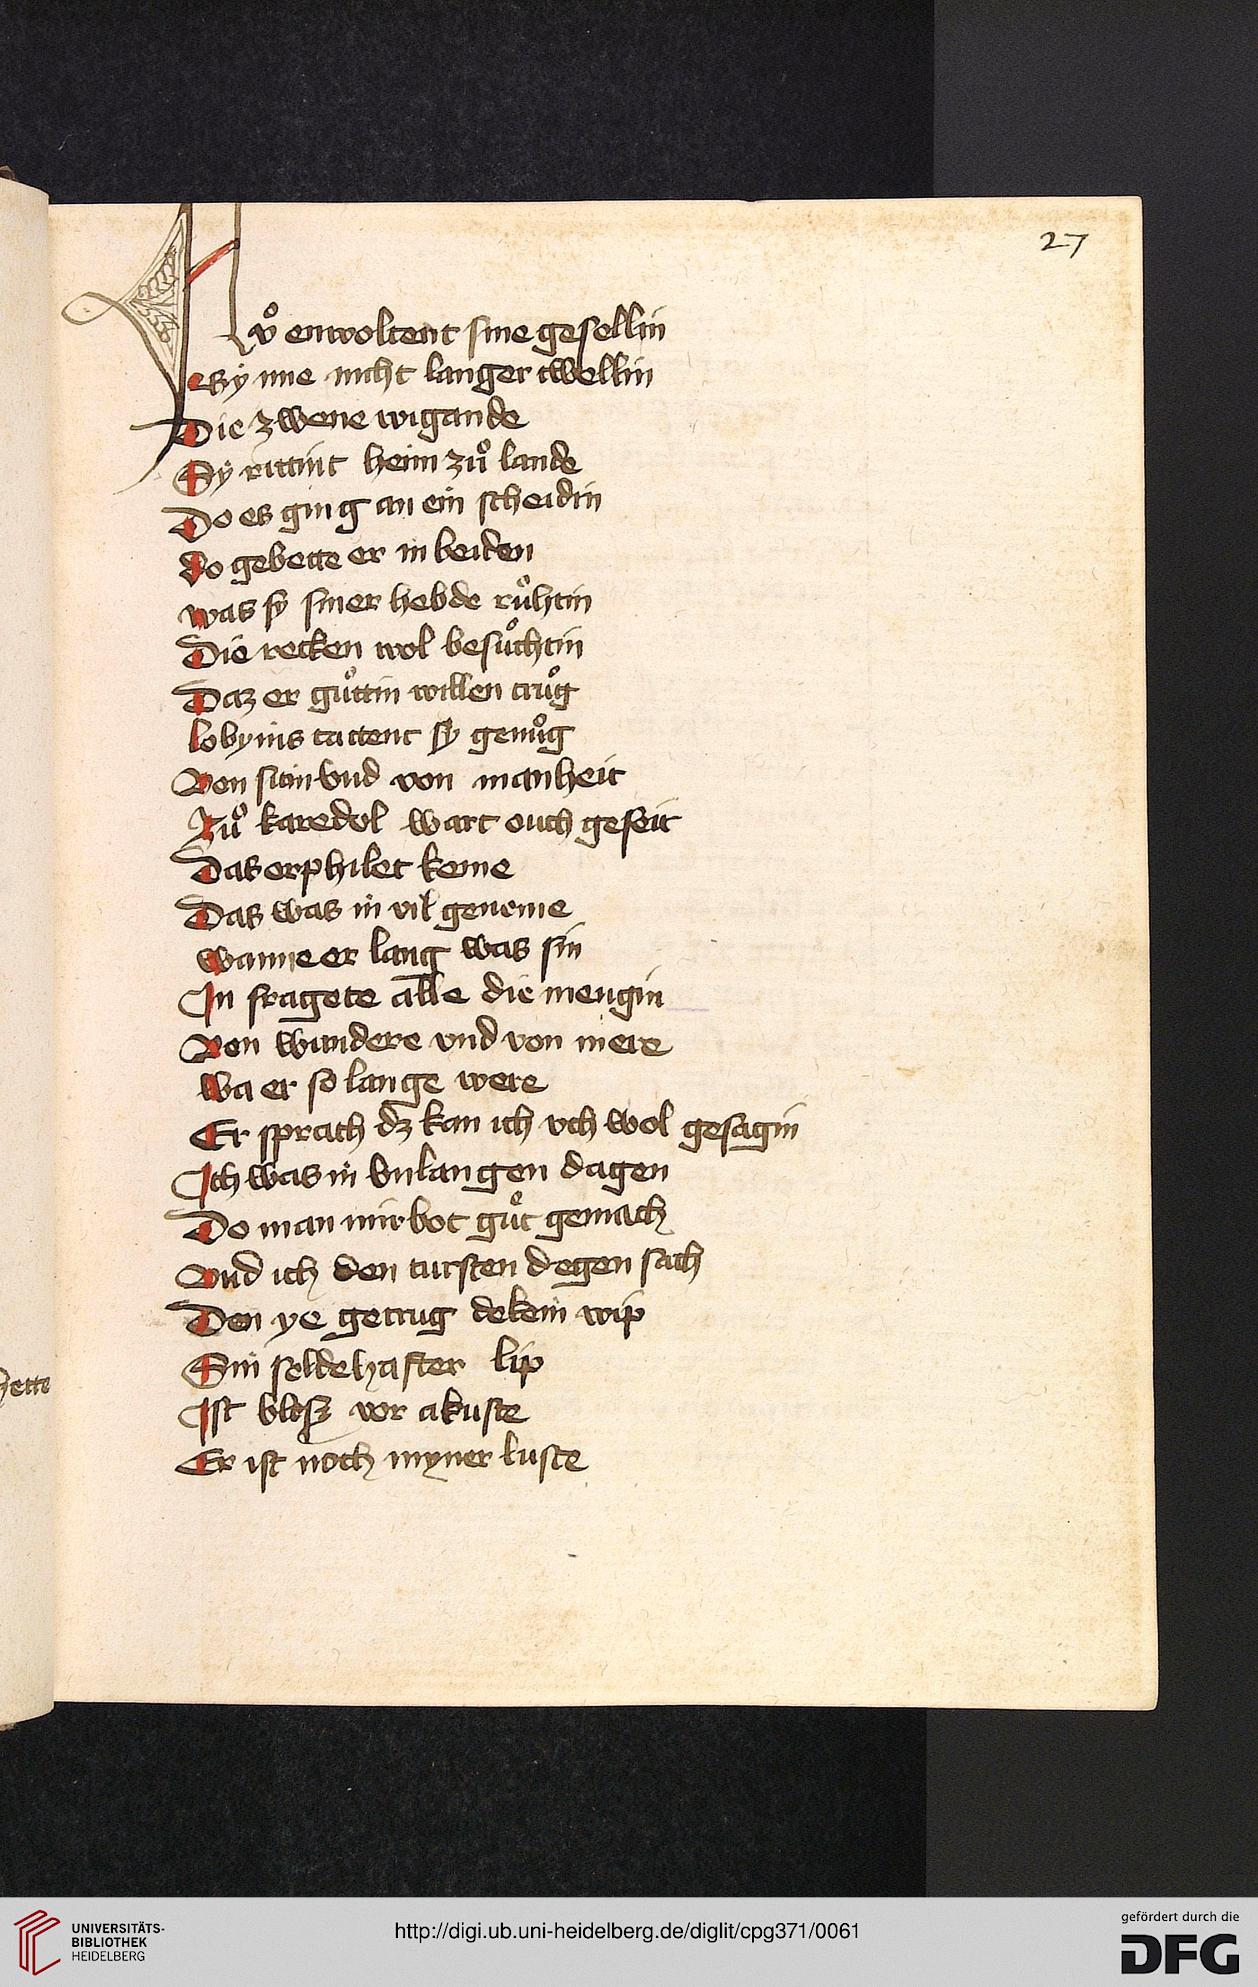 27
Nvͦ enwoltent sine gesellin
By nne nicht langer twellin
Die zwene wigande
Sy rittint heim zuͦ lande
Do es ging an ein scheidin
do gebette er in beiden
was sy siner hebde ruͦhtin
Die recken wol besuͦchtin
Daz er guͦttin willen truͦg
lobynis tattent sy genuͦg
Von sitin vnd von manheit
Zuͦ karedol wart ouch geseit
Das erphilet keme
Das was in vil geneme
wanne er lang was sin
In fragete alle die mengin
Von wundere vnd von mere
wa er so lange were
Er sprach dz kan ich vch wol gesagin
Ich was in vnlangen dagen
Do man mir bot guͦt gemach
Vnd ich den tursten degen sach
Den ye getrug dekein wip
Sin seldehafter lip
Ist blosz vor akuste
Er ist noch myner luste
hette
UNIVERSITÄTS-
BIBLIOTHEK
HEIDELBERG
http://digi.ub.uni-heidelberg.de/diglit/cpg371/0061
gefördert durch die
DFG